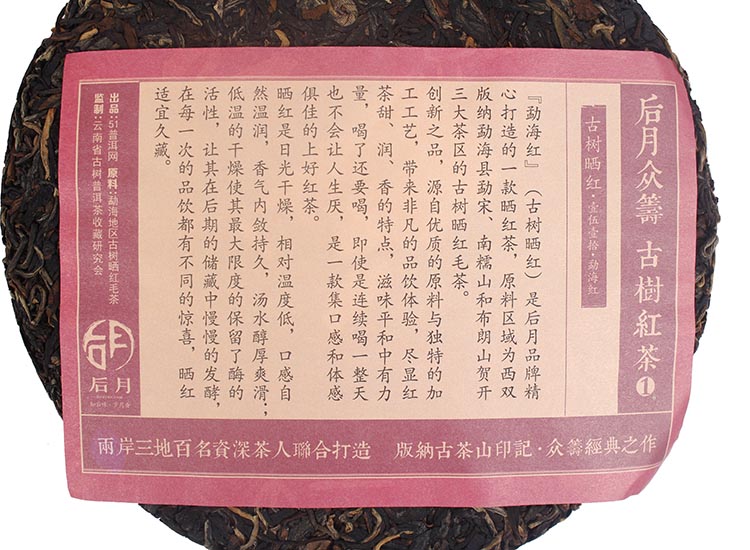 后月众籌 古樹紅茶❶
古树晒红·壹伍壹拾·勐海红
『勐海红』（古树晒红）是后月品牌精
心打造的一款晒红茶，原料区域为西双
版纳勐海县勐宋、南糯山和布朗山贺开
三大茶区的古树晒红毛茶。
创新之品，源自优质的原料与独特的加
工工艺，带来非凡的品饮体验，尽显红
茶甜、润、香的特点，滋味平和中有力
量，喝了还要喝，即使是连续喝一整天
也不会让人生厌，是一款集口感和体感
俱佳的上好红茶。
晒红是日光干燥，相对温度低，口感自
然温润，香气内敛持久，汤水醇厚爽滑；
低温的干燥使其最大限度的保留了酶的
活性，让其在后期的储藏中慢慢的发酵，
在每一次的品饮都有不同的惊喜，晒红
适宜久藏。
出品：51普洱网 原料：勐海地区古树晒红毛茶
监制：云南省古树普洱茶收藏研究会
后月
兩岸三地百名資深茶人聯合打造 版納古茶山印記·众籌經典之作